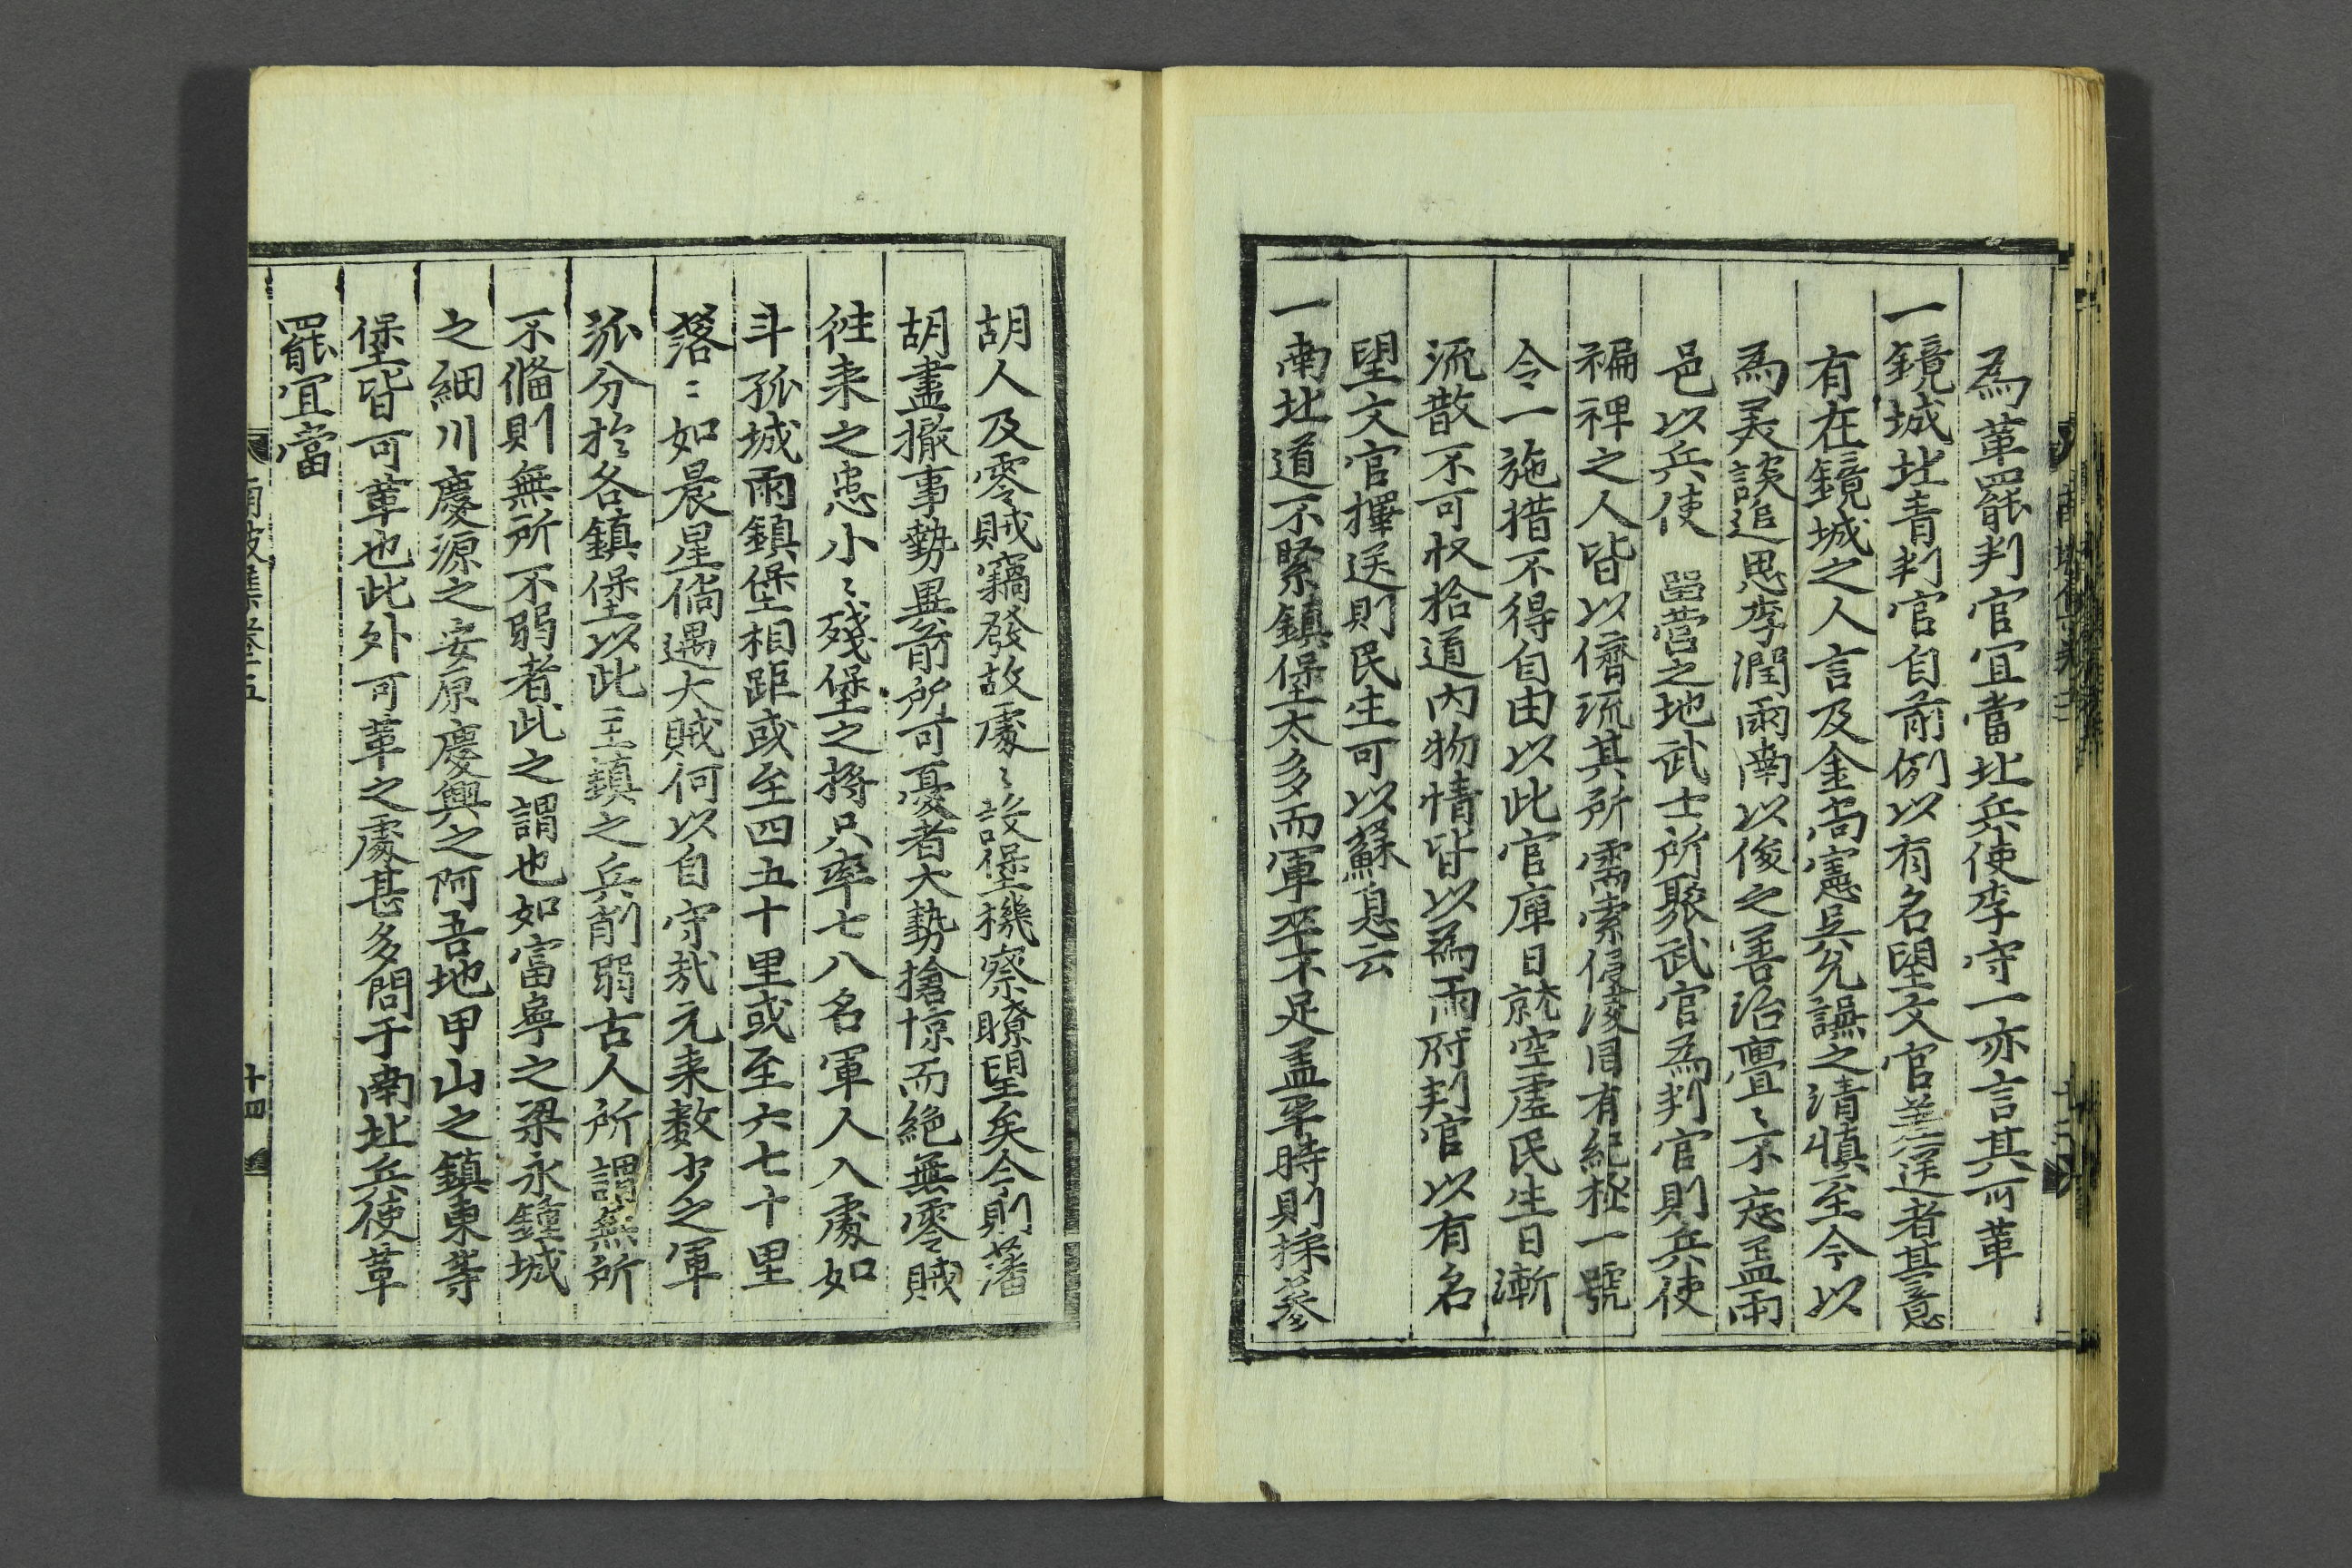 為革罷判官宜當北兵使李守一亦言其可革
一鏡城北青判官自前例以有名望文官差送者其意
有在鏡城之人言及金尚憲吳允謙之清愼至今以
為美談追思李潤雨南以俊之善治亹〻不忘盖兩
邑以兵使 留營之地武士所聚武官為判官則兵使
褊裨之人皆以儕流其所需索侵凌罔有紀極一號
令一施措不得自由以此官庫日就空虛民生日漸
流散不可收拾道內物情皆以為兩府判官以有名
望文官擇送則民生可以蘇息云
一南北道不緊鎮堡太多而軍卒不足盖平時則採蔘
胡人及零賊竊發故處〻設堡機察瞭望矣今則藩
胡盡撤事勢異前所可憂者大勢搶掠而絶無零賊
徃来之患小〻殘堡之將只率七八名軍人入處如
斗孤城兩鎮堡相距或至四五十里或至六七十里
落〻如晨星倘遇大賊何以自守哉元来數少之軍
派分於各鎮堡以此主鎮之兵削弱古人所謂無所
不備則無所不弱者此之謂也如富寧之梁永鍾城
之細川慶源之安原慶興之阿吾地甲山之鎮東等
堡皆可革也此外可革之處甚多問于南北兵使革
罷宜當
南坡集卷五
十四